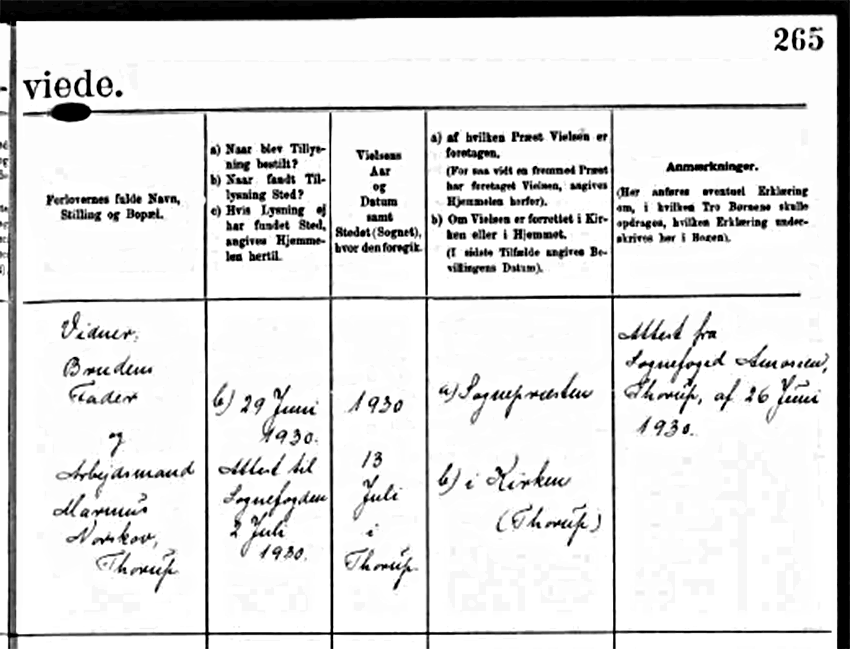 265
viede.
Forlovernes fulde Navn,
Stilling og Bopæl.
a) Naar blev Tillys-
ning bestilt?
b) Naar fandt Til-
lysning Sted?
c) Hvis Lysning ej
har fundet Sted,
angives Hjemme-
len hertil.
Vielsens
Aar
og
Datum
samt
Stedet (Sognet),
hvor den foregik.
a) af hvilken Præst Vielsen er
foretagen.
(For saa vidt en fremmed Præst
har foretaget Vielsen, angives
Hjemmelen herfor).
b) Om Vielsen er forrettet i Kir-
ken eller i Hjemmet.
(I sidste Tilfælde angives Be-
villingens Datum).
Anmærkninger.
(Her anføres eventuel Erklæring
om, i hvilken Tro Børnene skulle
opdrages, hvilken Erklæring under-
skrives her i Bogen).
Vidner:
Brudens
Fader
og
Arbejdsmand
Marinus
Norskov,
Thorup
b) 29 Juni
1930.
Attest til
Sognefogden
2 Juli
1930.
1930
13
Juli
i
Thorup
a) Sognepræsten
b) i Kirken
(Thorup)
Attest fra
Sognefoged Amossen,
Thorup, af 26 Juni
1930.